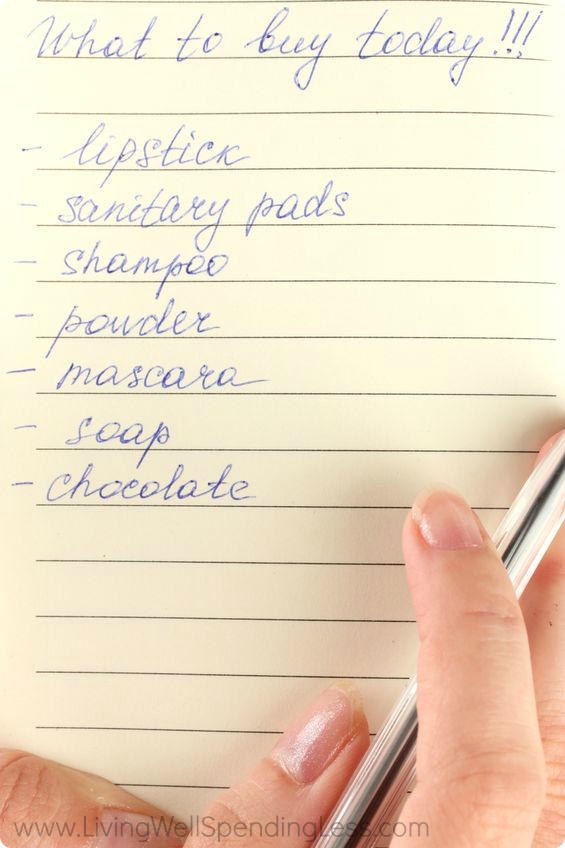 What to buy today!!!
- lipstick
- sanitary pads
- shampoo
- powder
- mascara
- soap
- chocolate
www.LivingWellSpendingLess.com